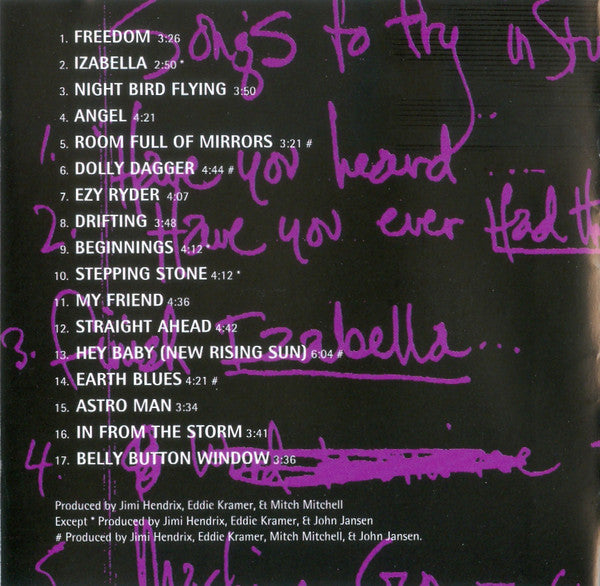 Songs to try in Str
1. FREEDOM 3:26
2. IZABELLA 2:50 *
3. NIGHT BIRD FLYING 3:50
4. ANGEL 4:21
5. ROOM FULL OF MIRRORS 3:21 #
6. DOLLY DAGGER 4:44 #
7. EZY RYDER 4:07
8. DRIFTING 3:48
9. BEGINNINGS 4:12 *
10. STEPPING STONE 4:12 *
11. MY FRIEND 4:36
12. STRAIGHT AHEAD 4:42
13. HEY BABY (NEW RISING SUN) 6:04 #
14. EARTH BLUES 4:21 #
15. ASTRO MAN 3:34
16. IN FROM THE STORM 3:41
17. BELLY BUTTON WINDOW 3:36
1. Have you heard ....
2. Have you ever Had th
3. Finish Izabella...
4.
5. Machine
Produced by Jimi Hendrix, Eddie Kramer, & Mitch Mitchell
Except * Produced by Jimi Hendrix, Eddie Kramer, & John Jansen
# Produced by Jimi Hendrix, Eddie Kramer, Mitch Mitchell, & John Jansen.